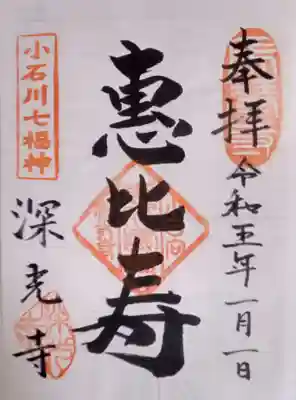 奉拝
令和五年一月一日
惠比寿
小石川七福神
深光寺